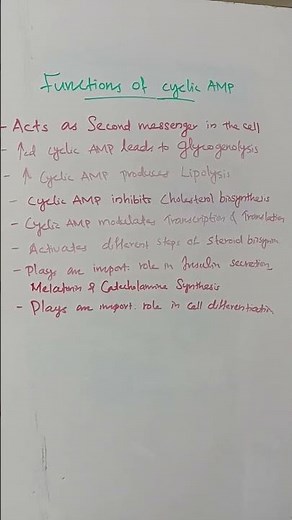 Functions of cyclic AMP
- Acts as Second messenger in the cell
- ↑ed cyclic AMP leads to glycogenolysis
- ↑ Cyclic AMP produces Lipolysis
- Cyclic AMP inhibits Cholesterol biosynthesis
- Cyclic AMP modulates Transcription & Translation
- Activates different steps of steroid
- Plays an import. role in Insulin secretion,
Melatonin & Catecholamine Synthesis
- Plays an import. role in cell differentiation